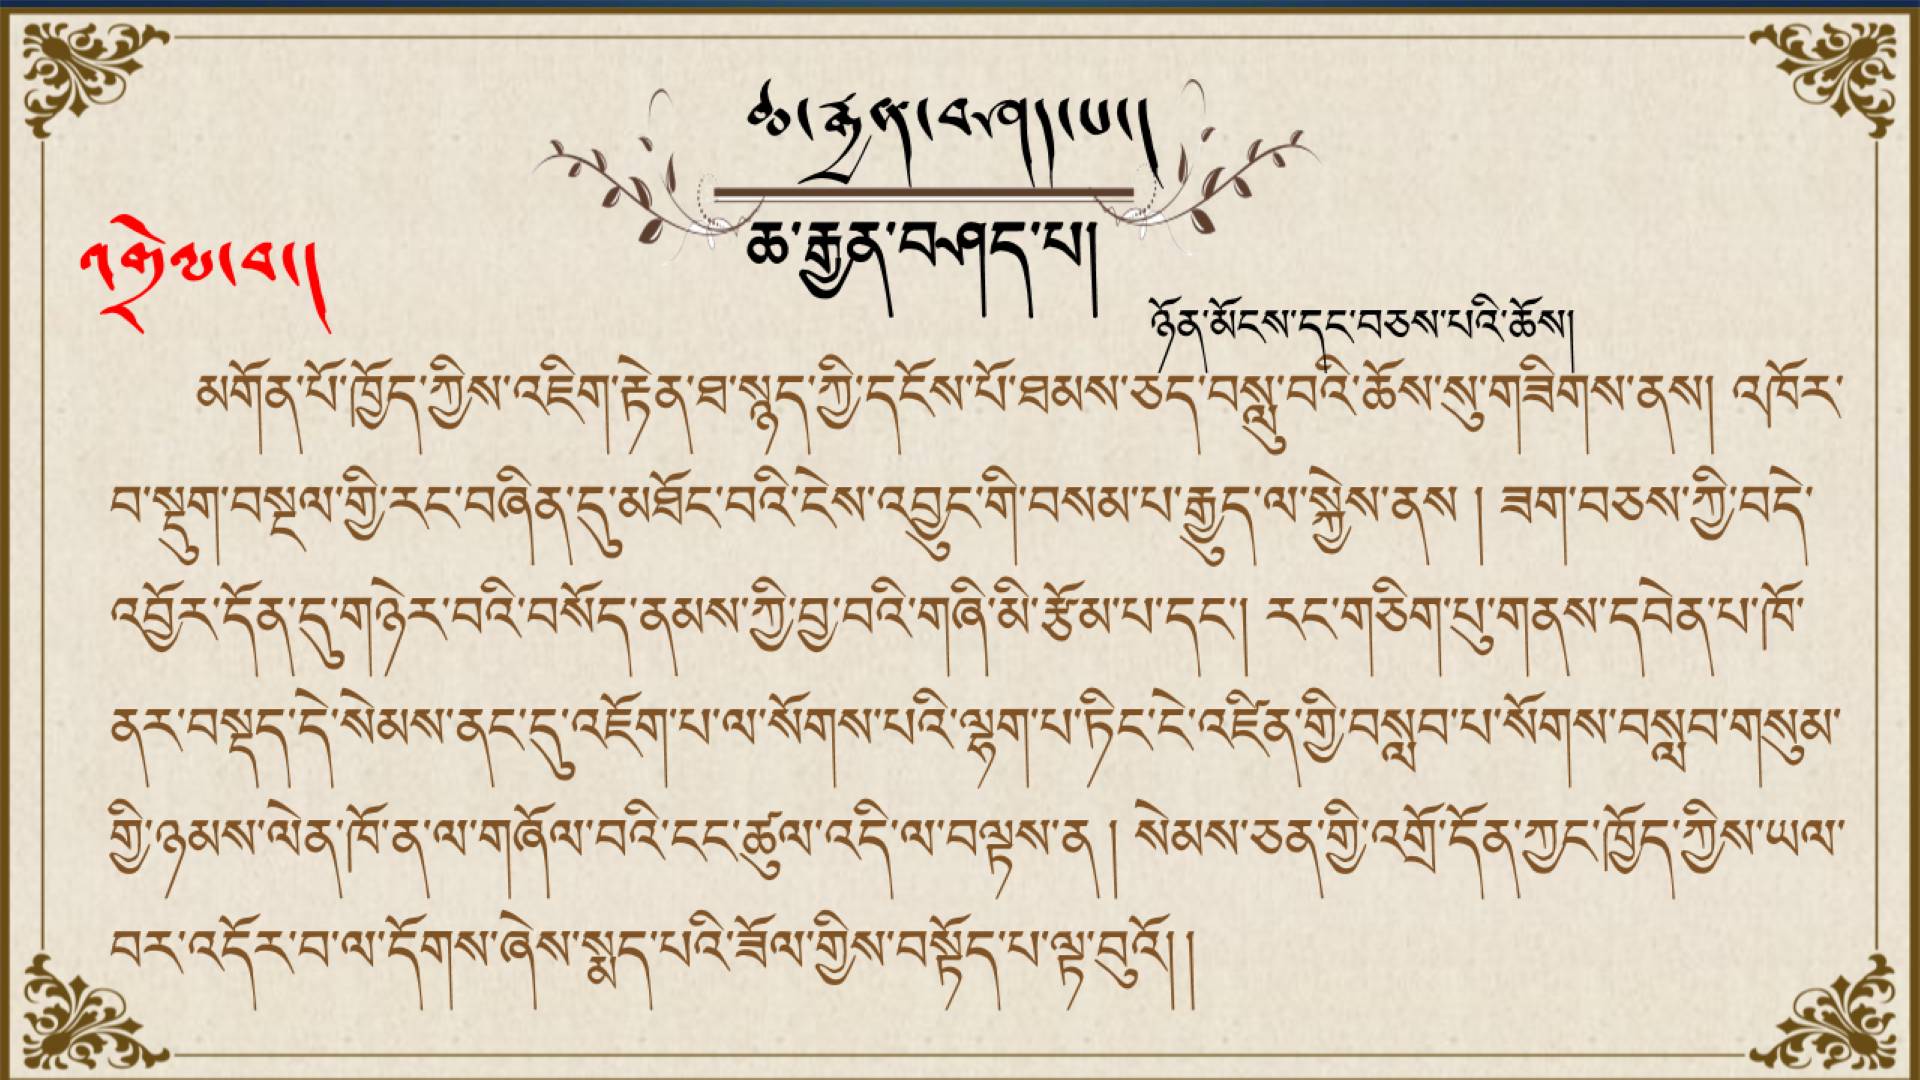 ཆ་རྒྱན་བཤད་པ།
འགྲེལ་བ།
ཆ་རྒྱན་བཤད་པ།
ཉོན་མོངས་དང་བཅས་པའི་ཆོས།
མགོན་པོ་ཁྱོད་ཀྱིས་འཇིག་རྟེན་ཐ་སྙད་ཀྱི་དངོས་པོ་ཐམས་ཅད་བསླུ་བའི་ཆོས་སུ་གཟིགས་ནས། འཁོར་
བ་སྡུག་བསྔལ་གྱི་རང་བཞིན་དུ་མཐོང་བའི་ངེས་འབྱུང་གི་བསམ་པ་རྒྱུད་ལ་སྐྱེས་ནས། ཟག་བཅས་ཀྱི་བདེ་
འབྱོར་དོན་དུ་གཉེར་བའི་བསོད་ནམས་ཀྱི་བྱ་བའི་གཞི་མི་རྩོམ་པ་དང་། རང་གཅིག་པུ་གནས་དབེན་པ་ཁོ་
ནར་བསྡད་དེ་སེམས་ནང་དུ་འཇོག་པ་ལ་སོགས་པའི་ལྷག་པ་ཏིང་ངེ་འཛིན་གྱི་བསླབ་པ་སོགས་བསླབ་གསུམ་
གྱི་ཉམས་ལེན་ཁོ་ན་ལ་གཞོལ་བའི་ངང་ཚུལ་འདི་ལ་བལྟས་ན། སེམས་ཅན་གྱི་འགྲོ་དོན་ཀྱང་ཁྱོད་ཀྱིས་ཡལ་
བར་འདོར་བ་ལ་དོགས་ཞེས་སྨད་པའི་ཟོལ་གྱིས་བསྟོད་པ་ལྟ་བུའོ།།